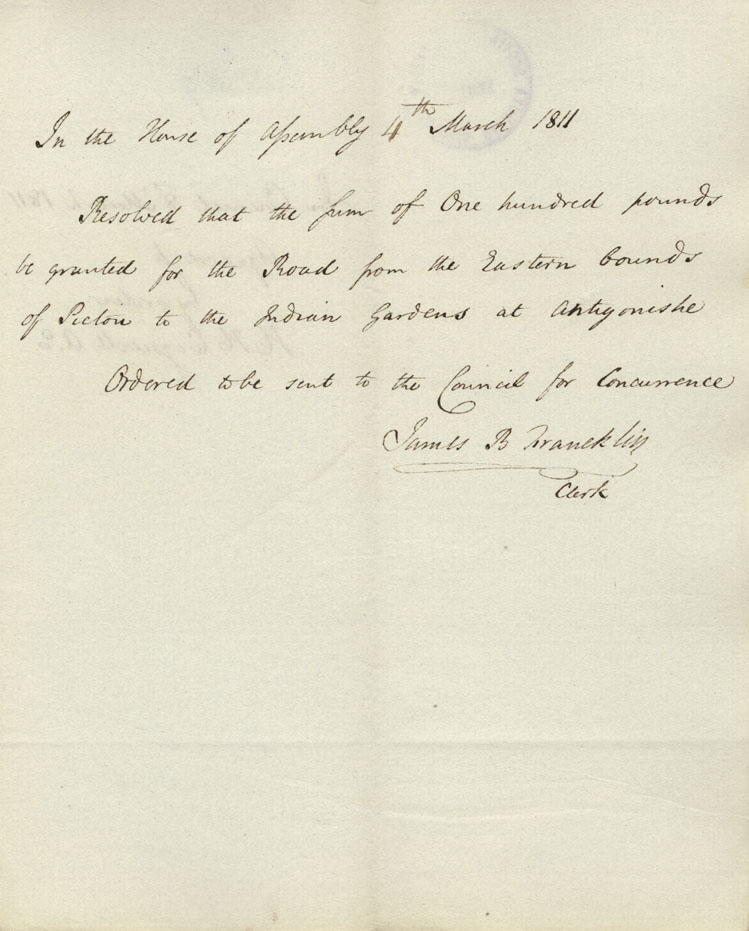 In the House of Assembly 4th March 1811
Resolved that the sum of One hundred pounds
be granted for the Road from the Eastern bounds
of Pictou to the Indian Gardens at Antigonishe
Ordered to be sent to the Council for Concurrence
James B Francklin
Clerk